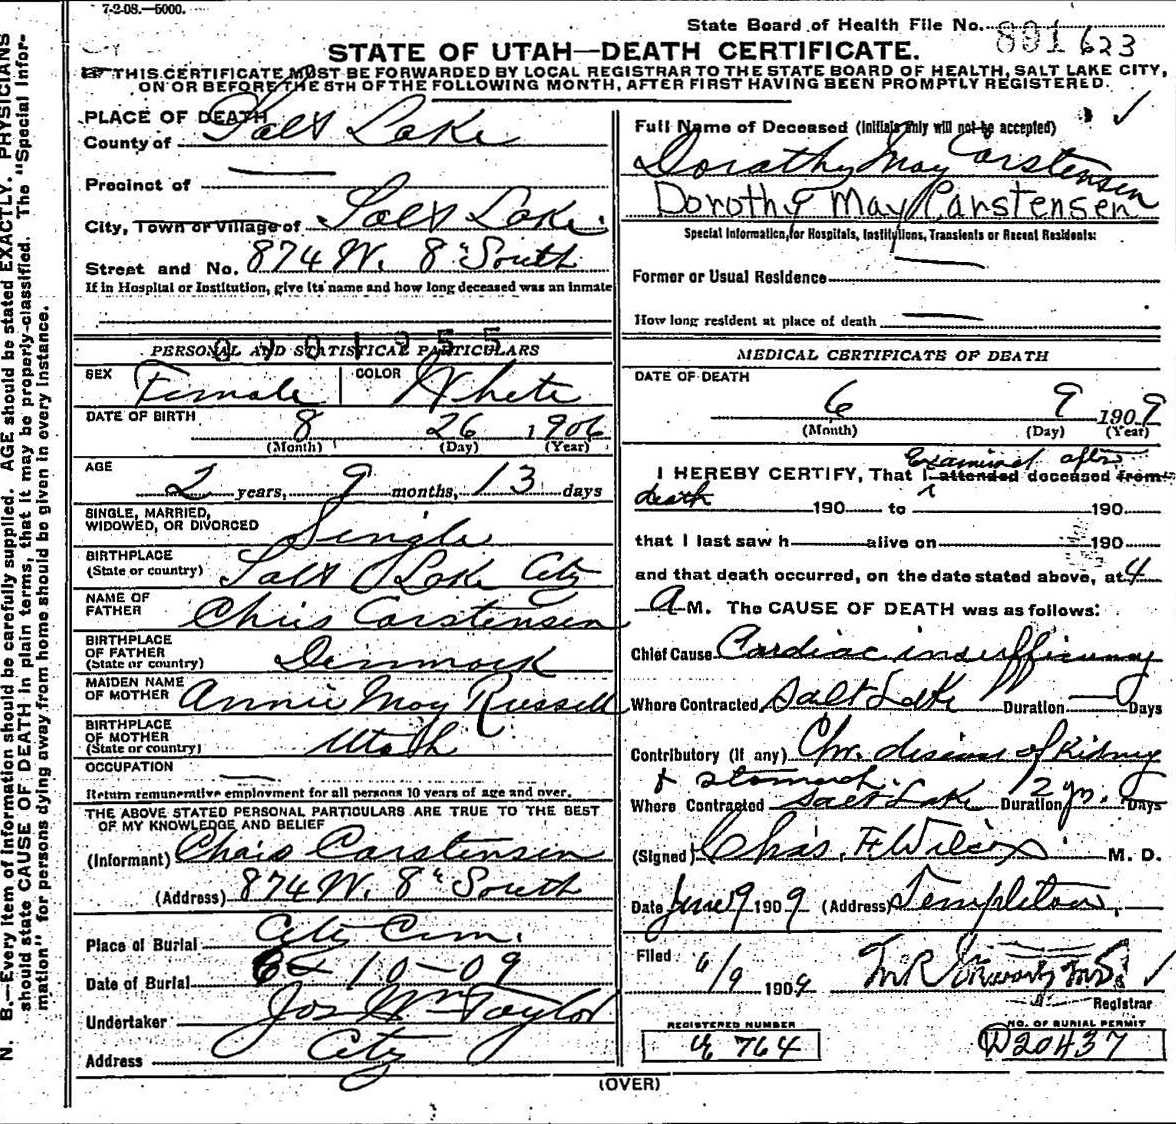 7-2-08.—5000.
State Board of Health File No. 891 623
STATE OF UTAH—DEATH CERTIFICATE.
THIS CERTIFICATE MUST BE FORWARDED BY LOCAL REGISTRAR TO THE STATE BOARD OF HEALTH, SALT LAKE CITY,
ON OR BEFORE THE 5TH OF THE FOLLOWING MONTH, AFTER FIRST HAVING BEEN PROMPTLY REGISTERED.
PLACE OF DEATH
County of Salt Lake
Precinct of
City, Town or Village of Salt Lake
Street and No. 874 W. 8" South
If in Hospital or Institution, give its name and how long deceased was an inmate
PERSONAL AND STATISTICAL PARTICULARS
SEX Female COLOR White
DATE OF BIRTH 8 26 1906
(Month) (Day) (Year)
AGE
2 years, 9 months, 13 days
SINGLE, MARRIED,
WIDOWED, OR DIVORCED Single
BIRTHPLACE
(State or country) Salt Lake City
NAME OF
FATHER Chris Carstensen
BIRTHPLACE
OF FATHER
(State or country) Denmark
MAIDEN NAME
OF MOTHER Annie May Russell
BIRTHPLACE
OF MOTHER
(State or country) Utah
OCCUPATION
Return remunerative employment for all persons 10 years of age and over.
THE ABOVE STATED PERSONAL PARTICULARS ARE TRUE TO THE BEST
OF MY KNOWLEDGE AND BELIEF
(Informant) Chris Carstensen
(Address) 874 W. 8" South
Place of Burial City Cem.
Date of Burial 6 10-09
Undertaker Jos Wm Taylor
Address City
Full Name of Deceased (Initials only will not be accepted)
Dorathy May Carstensen
Dorothy May Carstensen
Special Information, for Hospitals, Institutions, Transients or Recent Residents:
Former or Usual Residence
How long resident at place of death
MEDICAL CERTIFICATE OF DEATH
DATE OF DEATH
6 9 1909
(Month) (Day) (Year)
Examined after
I HEREBY CERTIFY, That I attended deceased from
death 190 to 190
that I last saw h alive on 190
and that death occurred, on the date stated above, at 4
A M. The CAUSE OF DEATH was as follows:
Chief Cause Cardiac insufficiency
Where Contracted Salt Lake Duration Days
Contributory (if any) Chr. disease of Kidney
& stomach
Where Contracted Salt Lake Duration 2 yr. Days
(Signed) Chas. F. Wilcox M. D.
Date June 9 1909 (Address) Templeton
Filed 6/9 1909
Registrar
REGISTERED NUMBER
764
NO. OF BURIAL PERMIT
D20437
(OVER)
N. B.—Every item of information should be carefully supplied. AGE should be stated EXACTLY. PHYSICIANS
should state CAUSE OF DEATH in plain terms, that it may be properly classified. The "Special Infor-
mation" for persons dying away from home should be given in every instance.